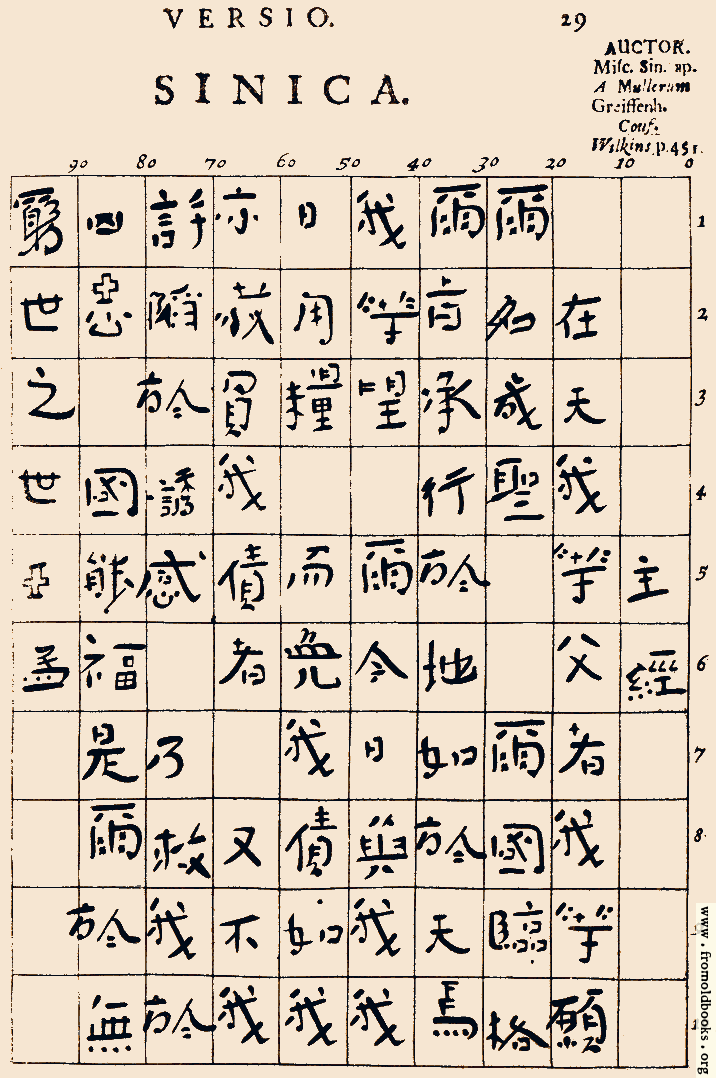 VERSIO.
29
SINICA.
AUCTOR.
Misc. Sin. ap.
A Mullerum
Greiffenh.
Conf.
Wilkins p.451.
90 80 70 60 50 40 30 20 10 0
主經
在天我等父者我等願
爾名成聖爾國臨格
爾旨承行於地如於天焉
我等望爾今日與我我
日用糧而免我債如我
亦赦負我債者又不我
許陷於誘感乃救我於
凶惡國能福是爾於無
窮世之世亞孟
1
2
3
4
5
6
7
8
www.fromoldbooks.org